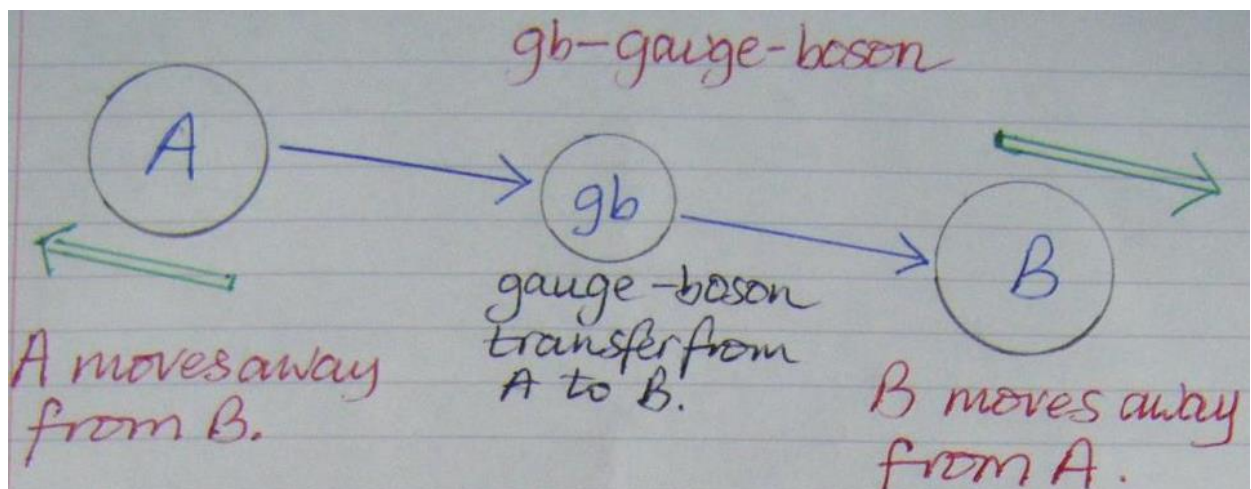 gb-gauge-boson
A
gb
B
gauge-boson
transfer from
A to B.
A moves away
from B.
B moves away
from A.